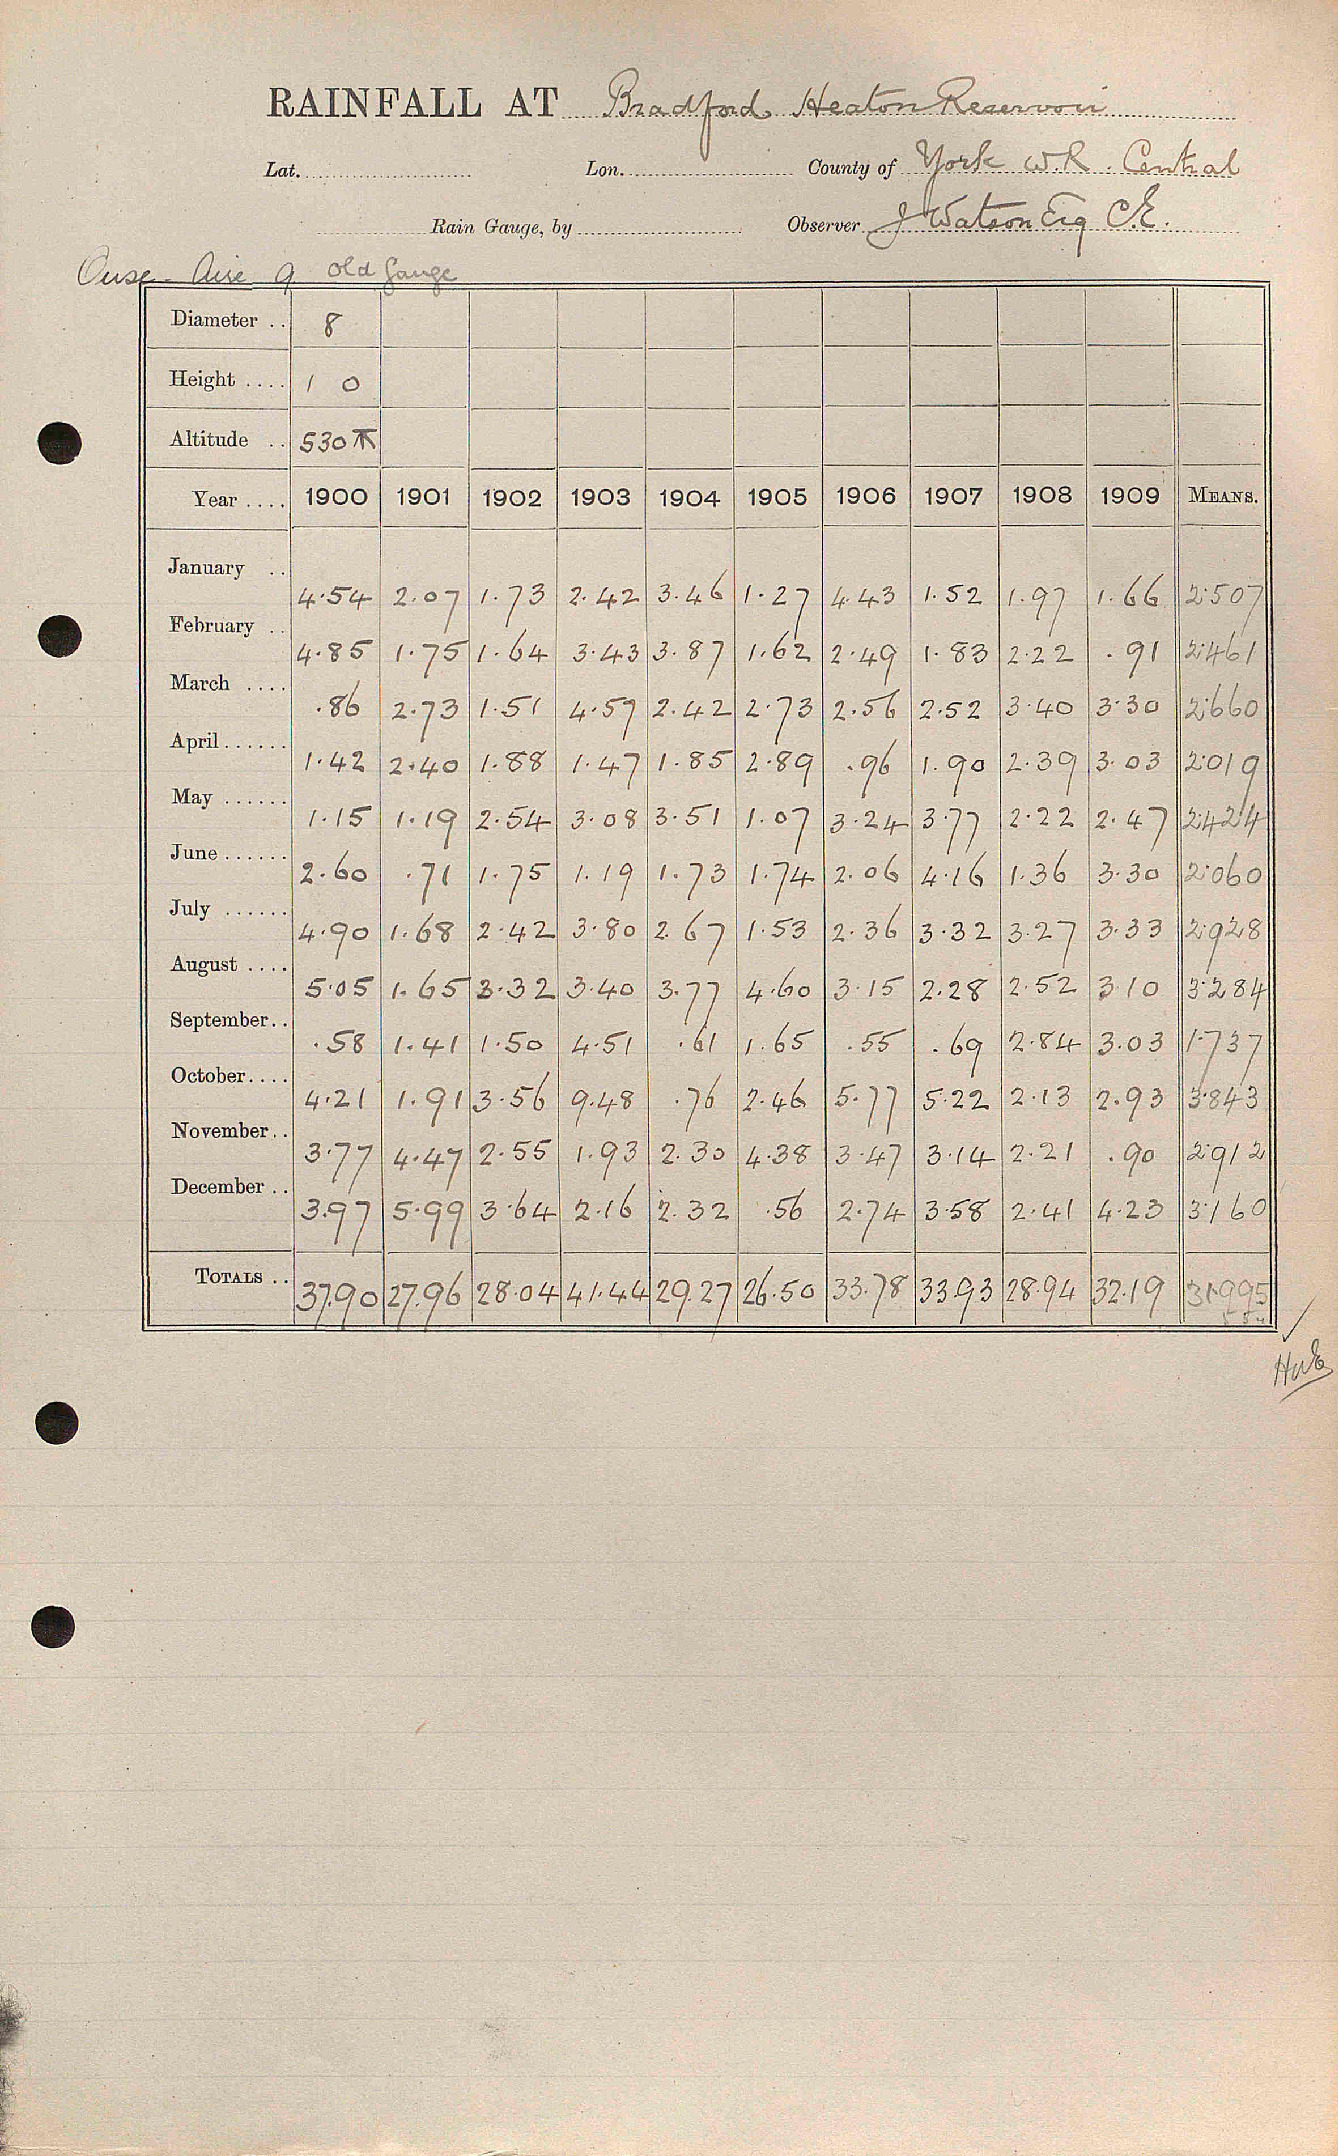 RAINFALL AT Bradford Heaton Reservoir
Lat. Lon. County of York W.R. Central
Rain Gauge, by Observer J Watson Esq C.E.
Ouse - Aire 9 old gauge
Diameter .. 8
Height .... 1 0
Altitude .. 530
Year .... 1900 1901 1902 1903 1904 1905 1906 1907 1908 1909 MEANS.
January .. 4.54 2.07 1.73 2.42 3.46 1.27 4.43 1.52 1.97 1.66 2.507
February .. 4.85 1.75 1.64 3.43 3.87 1.62 2.49 1.83 2.22 .91 2.461
March .... .86 2.73 1.51 4.57 2.42 2.73 2.56 2.52 3.40 3.30 2.660
April ...... 1.42 2.40 1.88 1.47 1.85 2.89 .96 1.90 2.39 3.03 2.019
May ...... 1.15 1.19 2.54 3.08 3.51 1.07 3.24 3.77 2.22 2.47 2.424
June ...... 2.60 .71 1.75 1.19 1.73 1.74 2.06 4.16 1.36 3.30 2.060
July ...... 4.90 1.68 2.42 3.80 2.67 1.53 2.36 3.32 3.27 3.33 2.928
August .... 5.05 1.65 3.32 3.40 3.77 4.60 3.15 2.28 2.52 3.10 3.284
September.. .58 1.41 1.50 4.51 .61 1.65 .55 .69 2.84 3.03 1.737
October.... 4.21 1.91 3.56 9.48 .76 2.46 5.77 5.22 2.13 2.93 3.843
November.. 3.77 4.47 2.55 1.93 2.30 4.38 3.47 3.14 2.21 .90 2.912
December .. 3.97 5.99 3.64 2.16 2.32 .56 2.74 3.58 2.41 4.23 3.160
TOTALS .. 37.90 27.96 28.04 41.44 29.27 26.50 33.78 33.93 28.94 32.19 31.995